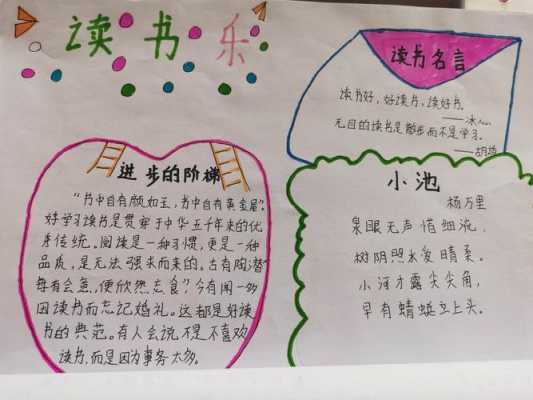 读书乐
读书名言
读书好,好读书,读好书。
——冰心
无目的读书是散步而不是学习。
——胡适
进步的阶梯
“书中自有颜如玉,书中自有黄金屋”。
好学习读书是贯穿于中华五千年来的优
秀传统。阅读是一种习惯,更是一种
品质,是无法强求而来的。古有陶潜“
每有会意,便欣然忘食”今有闻一多
因读书而忘记婚礼。这都是好读
书的典范。有人会说不是不喜欢
读书,而是因为事务太多。
小池
杨万里
泉眼无声惜细流,
树阴照水爱晴柔。
小河才露尖尖角,
早有蜻蜓立上头。